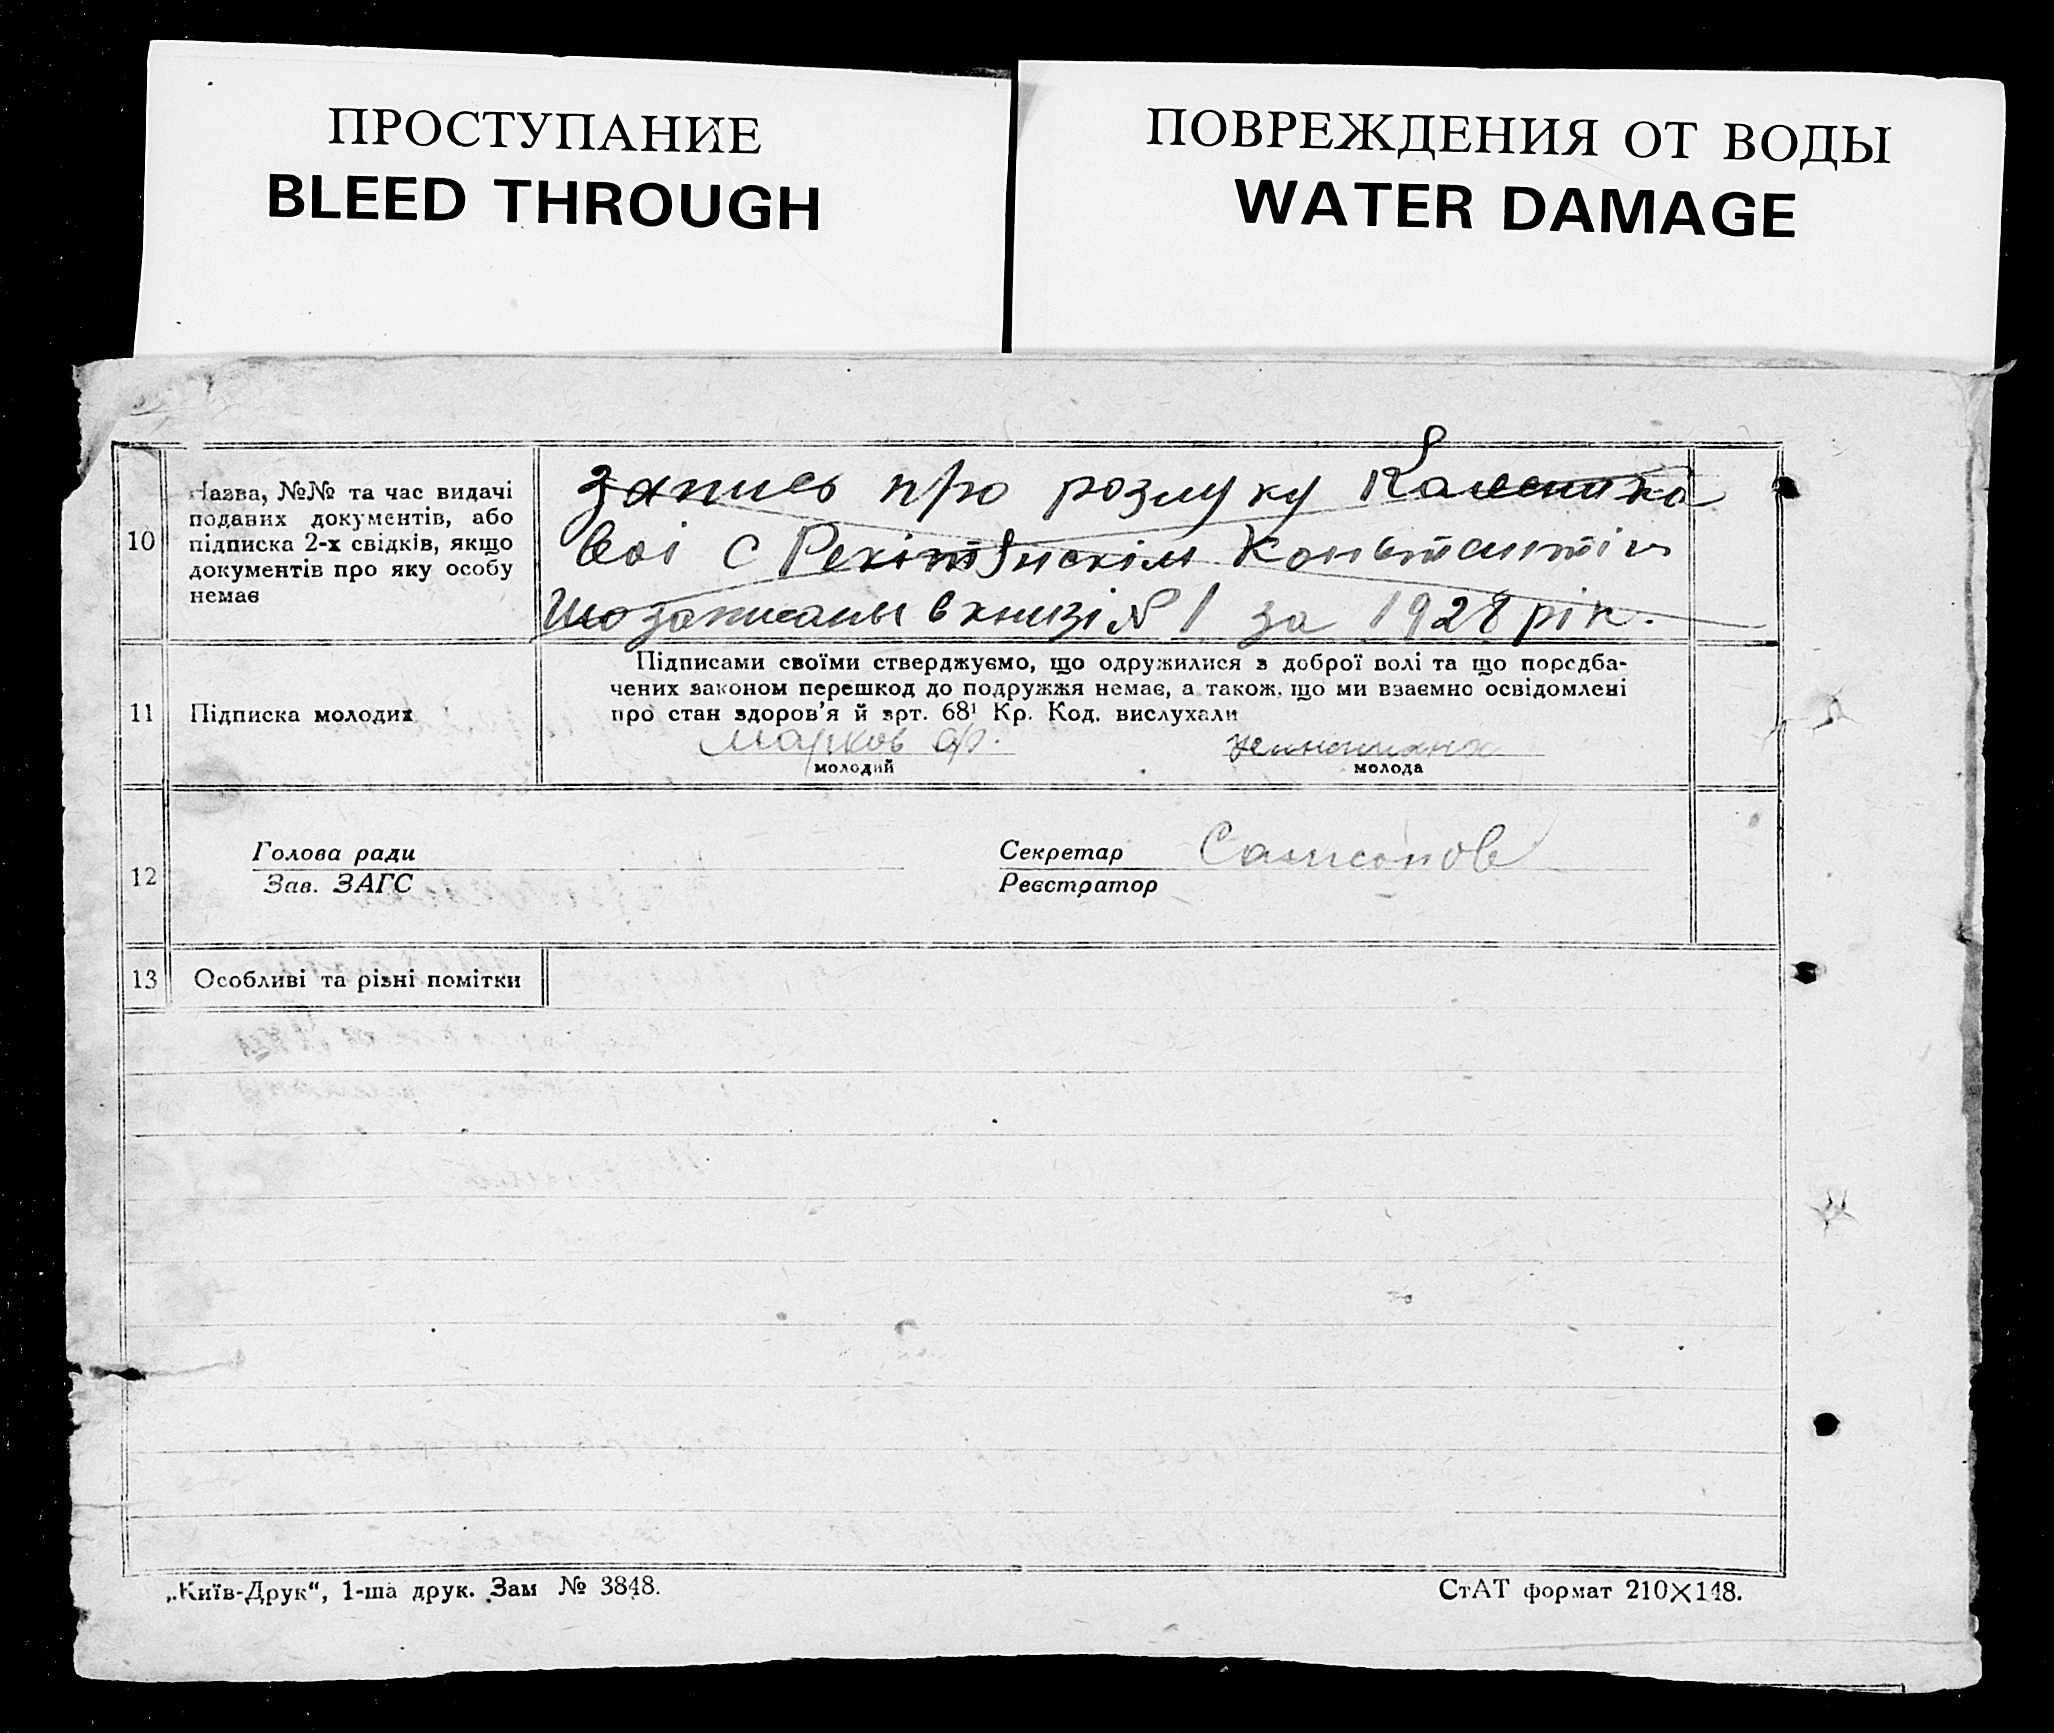 ПРОСТУПАНИЕ
BLEED THROUGH
ПОВРЕЖДЕНИЯ ОТ ВОДЫ
WATER DAMAGE
10
Назва, №№ та час видачі
поданих документів, або
підписка 2-х свідків, якщо
документів про яку особу
немає
запись про розлуку
с Константін
що записаны в книзі № 1 за 1928 рік.
11
Підписка молодих
Підписами своїми стверджуємо, що одружилися з доброї волі та що передба-
чених законом перешкод до подружжя немає, а також, що ми взаємно освідомлені
про стан здоров'я й арт. 68¹ Кр. Код. вислухали
Марков Ф.
молодий
молода
12
Голова ради
Зав. ЗАГС
Секретар Самсонов
Реєстратор
13
Особливі та різні помітки
„Київ-Друк“, 1-ша друк. Зам № 3848.
СтАТ формат 210×148.